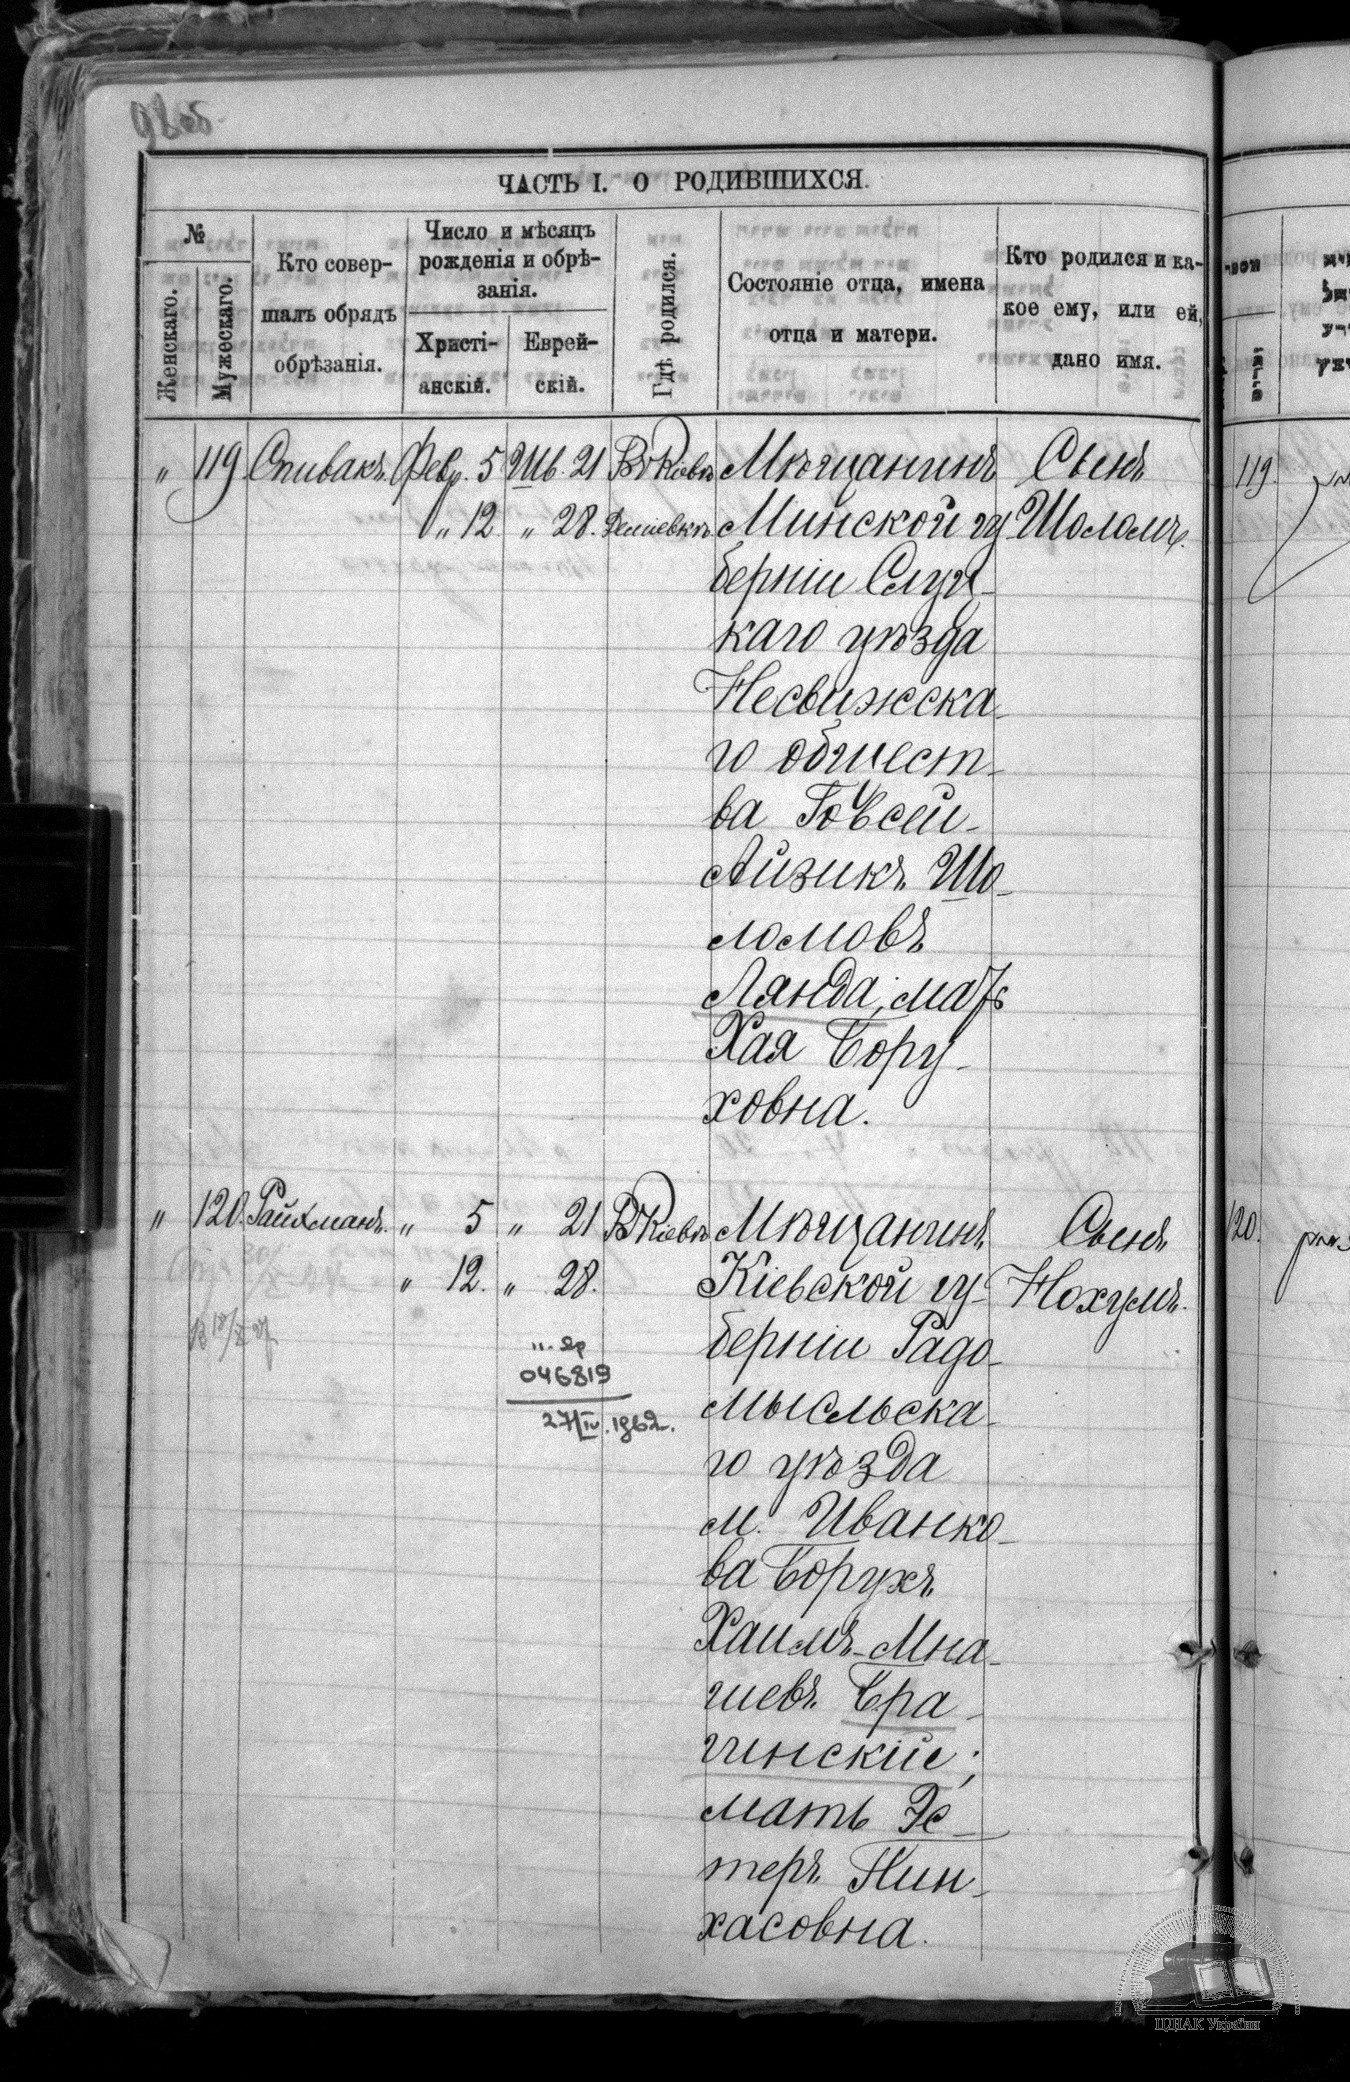 98об
ЧАСТЬ I. О РОДИВШИХСЯ.
№
Женскаго.
Мужескаго.
Кто совер-
шалъ обрядъ
обрѣзанія.
Число и мѣсяцъ
рожденія и обрѣ-
занія.
Христі-
анскій.
Еврей-
скій.
Гдѣ родился.
Состояніе отца, имена
отца и матери.
Кто родился и ка-
кое ему, или ей,
дано имя.
" 119 Спивакъ. Февр. 5 Шв. 21 В г Кіевѣ Мѣщанинъ Сынъ
" 12. " 28. Деміевкѣ. Минской гу Шоломъ.
берніи Слуц-
каго уѣзда
Несвижска-
го общест-
ва Говсей-
Айзикъ Шо-
ломовъ
Лянда, мать
Хая Бору-
ховна.
" 120. Райхманъ. " 5 " 21 В г Кіевѣ Мѣщанинъ Сынъ
" 12. " 28. Кіевской гу- Нохумъ.
берніи Радо-
мысльска-
го уѣзда
м. Иванко-
ва Борухъ
Хаимъ-Мна-
шевъ Бра-
гинскій;
мать Эс-
теръ Пин-
хасовна.
046819
27/IV.1962.
119.
120.
ЦДІАК України